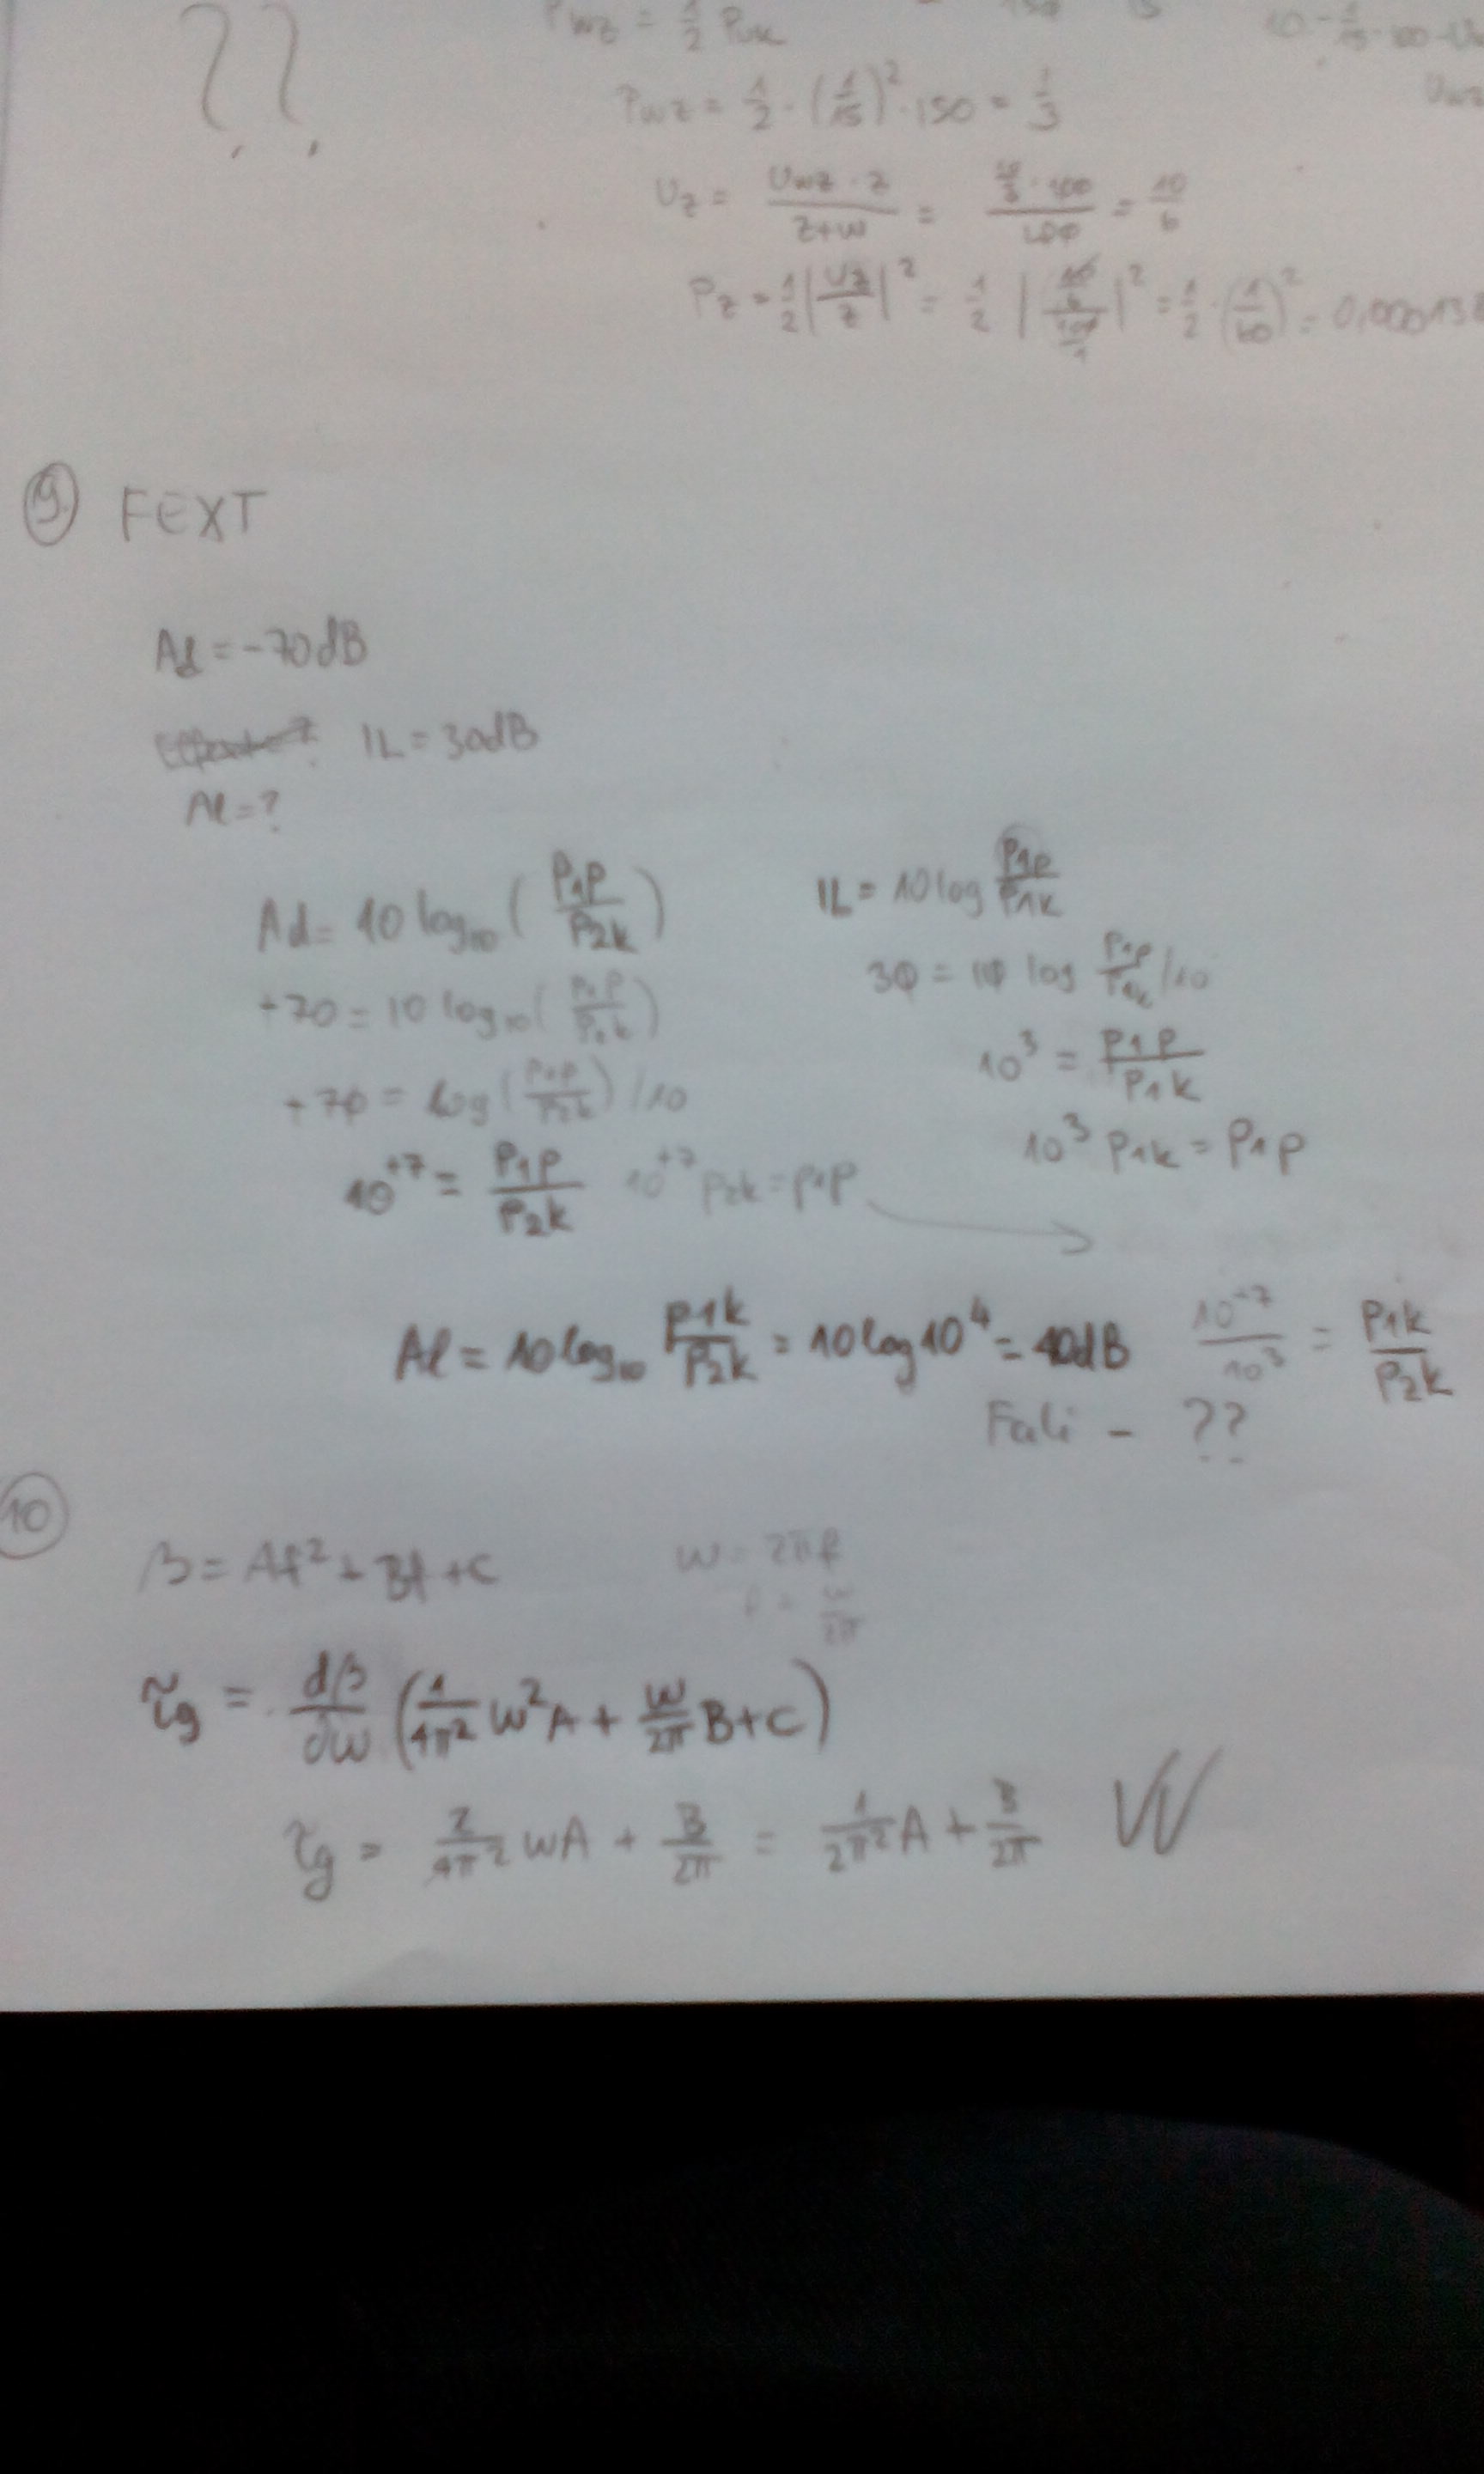 ??
Pwz = 1/2 Puk
Pwz = 1/2 · (1/15)² · 150 = 1/3
Uz = Uwz · z / z+w = 10/6
Pz = 1/2 |Uz/z|² = 1/2 | |² = 1/2 · (1/60)² = 0,000138
9. FEXT
Ad = -70dB
IL = 30dB
Al = ?
Ad = 10 log₁₀ (P1p/P2k)
IL = 10 log P1p/P1k
+70 = 10 log₁₀ (P1p/P2k)
30 = 10 log P1p/P1k /10
+70 = log (P1p/P2k) /10
10³ = P1p/P1k
10⁺⁷ = P1p/P2k 10⁺⁷ P2k = P1p
10³ P1k = P1p
Al = 10 log₁₀ P1k/P2k = 10 log 10⁴ = 40dB 10⁺⁷/10³ = P1k/P2k
Fali - ??
10
β = Af² + Bf + C w = 2πf
f = w/2π
τg = dβ/dw (1/4π² w²A + w/2π B + C)
τg = 2/4π² wA + B/2π = 1/2π² A + B/2π